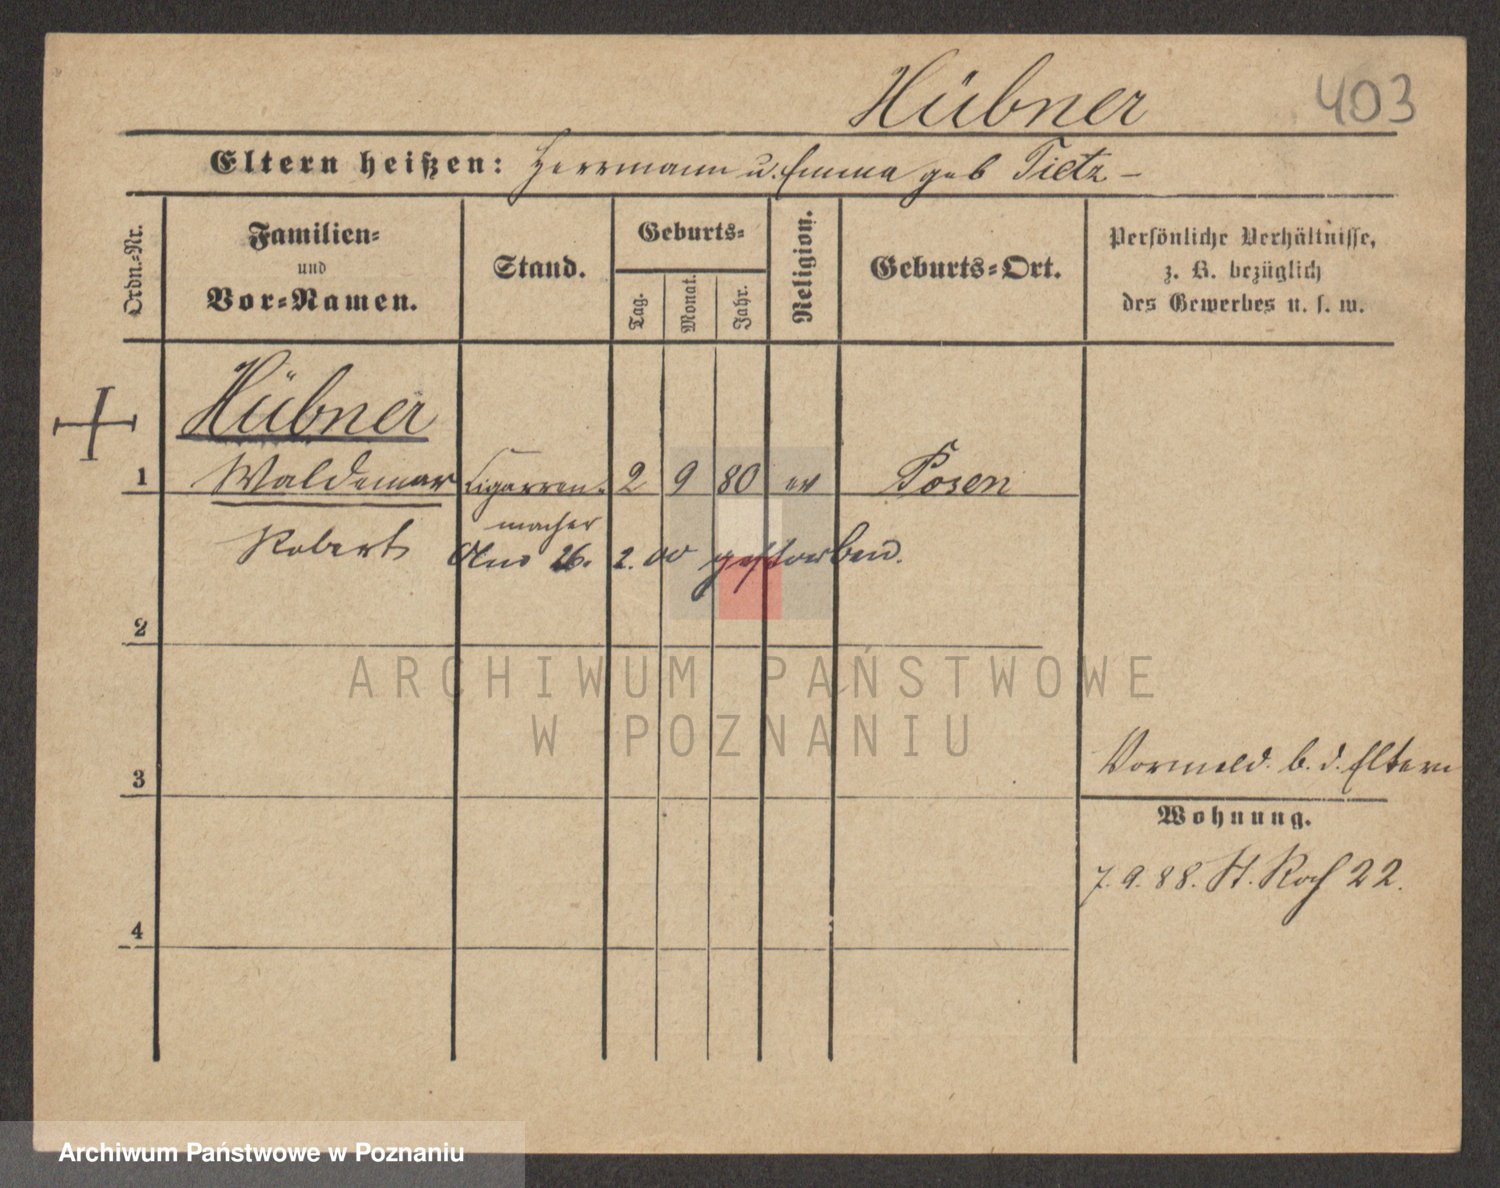 Hübner 403
Eltern heißen: Herrmann u. Emma geb Tietz –
Ordn.-Nr.
Familien-
und
Vor-Namen.
Stand.
Geburts-
Tag. Monat. Jahr.
Religion.
Geburts-Ort.
Persönliche Verhältnisse,
z. B. bezüglich
des Gewerbes u. s. w.
Hübner
1 Waldemar Cigarren- 2 9 80 ev Posen
macher
Robert
26. 2. 00 gestorben.
2
ARCHIWUM PAŃSTWOWE
W POZNANIU
3
Vormeld. b. d. Eltern
Wohnung.
7. 9. 88. St. Roch 22.
4
Archiwum Państwowe w Poznaniu